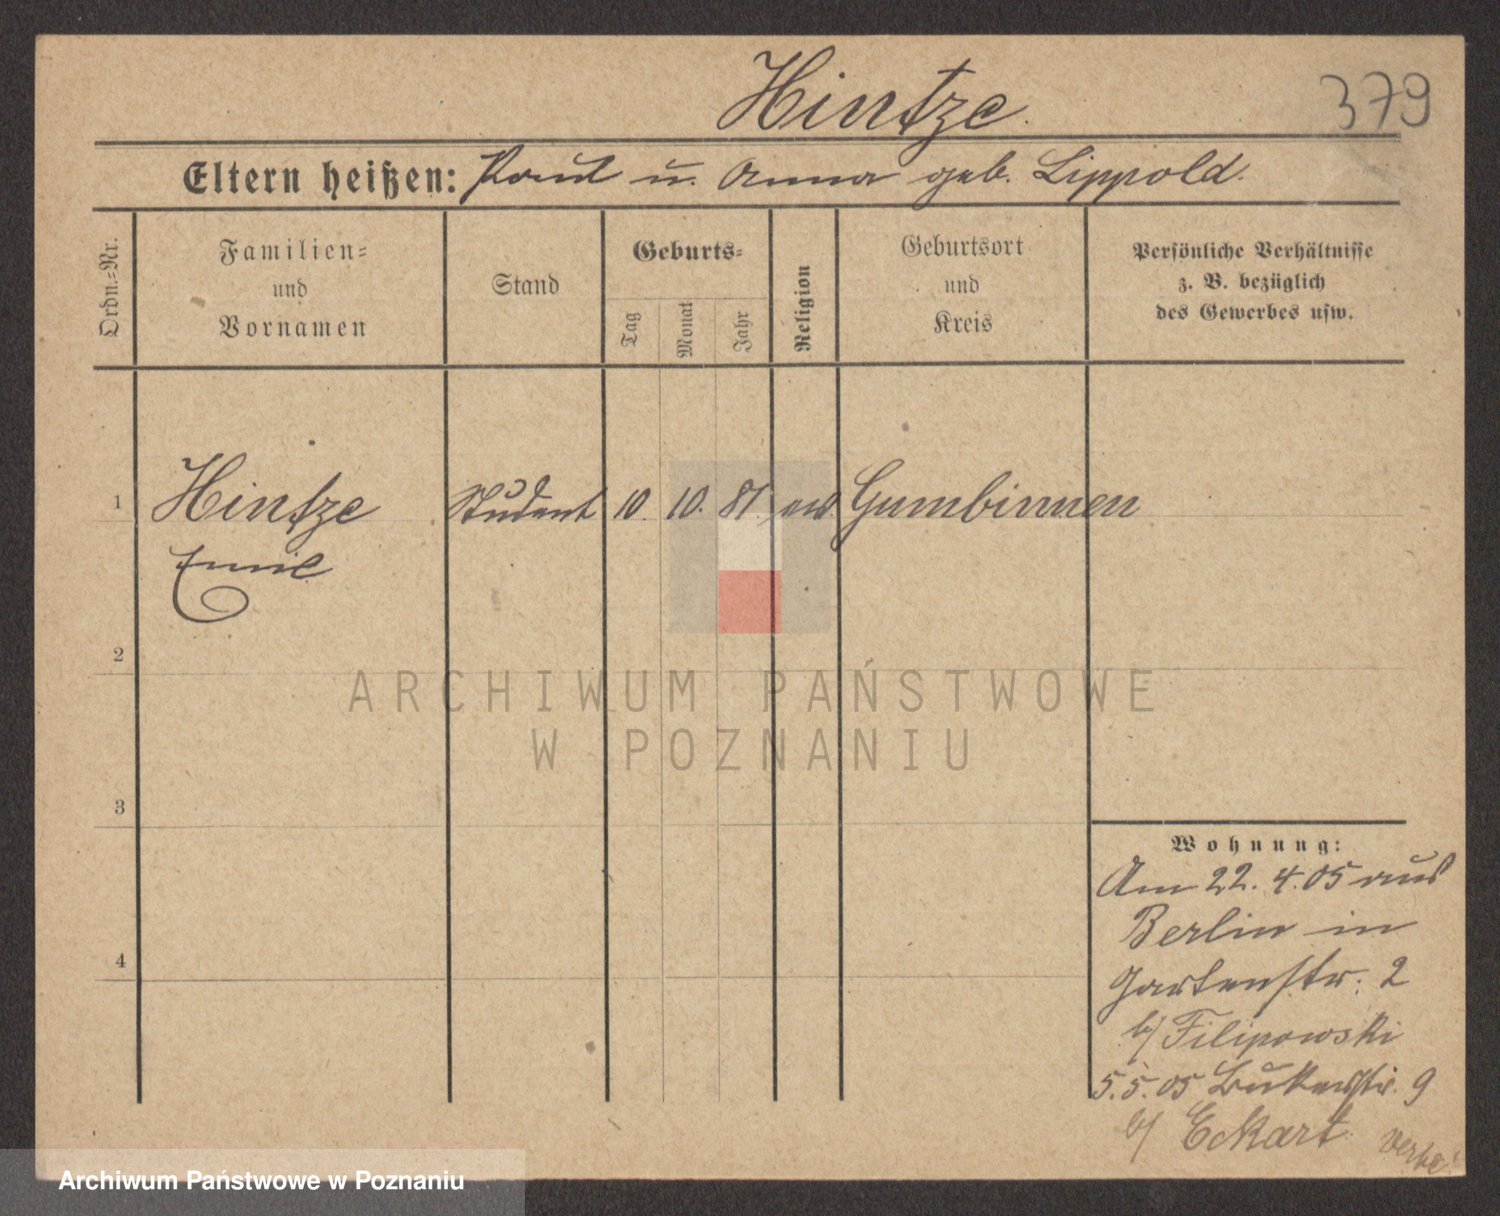 Hintze
379
Eltern heißen: Paul u. Anna geb. Lippold.
Ordn.=Nr.
Familien=
und
Vornamen
Stand
Geburts=
Tag
Monat
Jahr
Religion
Geburtsort
und
Kreis
Persönliche Verhältnisse
z. B. bezüglich
des Gewerbes usw.
1 Hintze Student 10. 10. 81. ev. Gumbinnen
Emil
2
ARCHIWUM PAŃSTWOWE
W POZNANIU
3
Wohnung:
Am 22. 4. 05 aus
Berlin in
4
Gartenstr. 2
b/ Filipowski
5. 5. 05 Bukerstr. 9
b/ Eckart
Archiwum Państwowe w Poznaniu